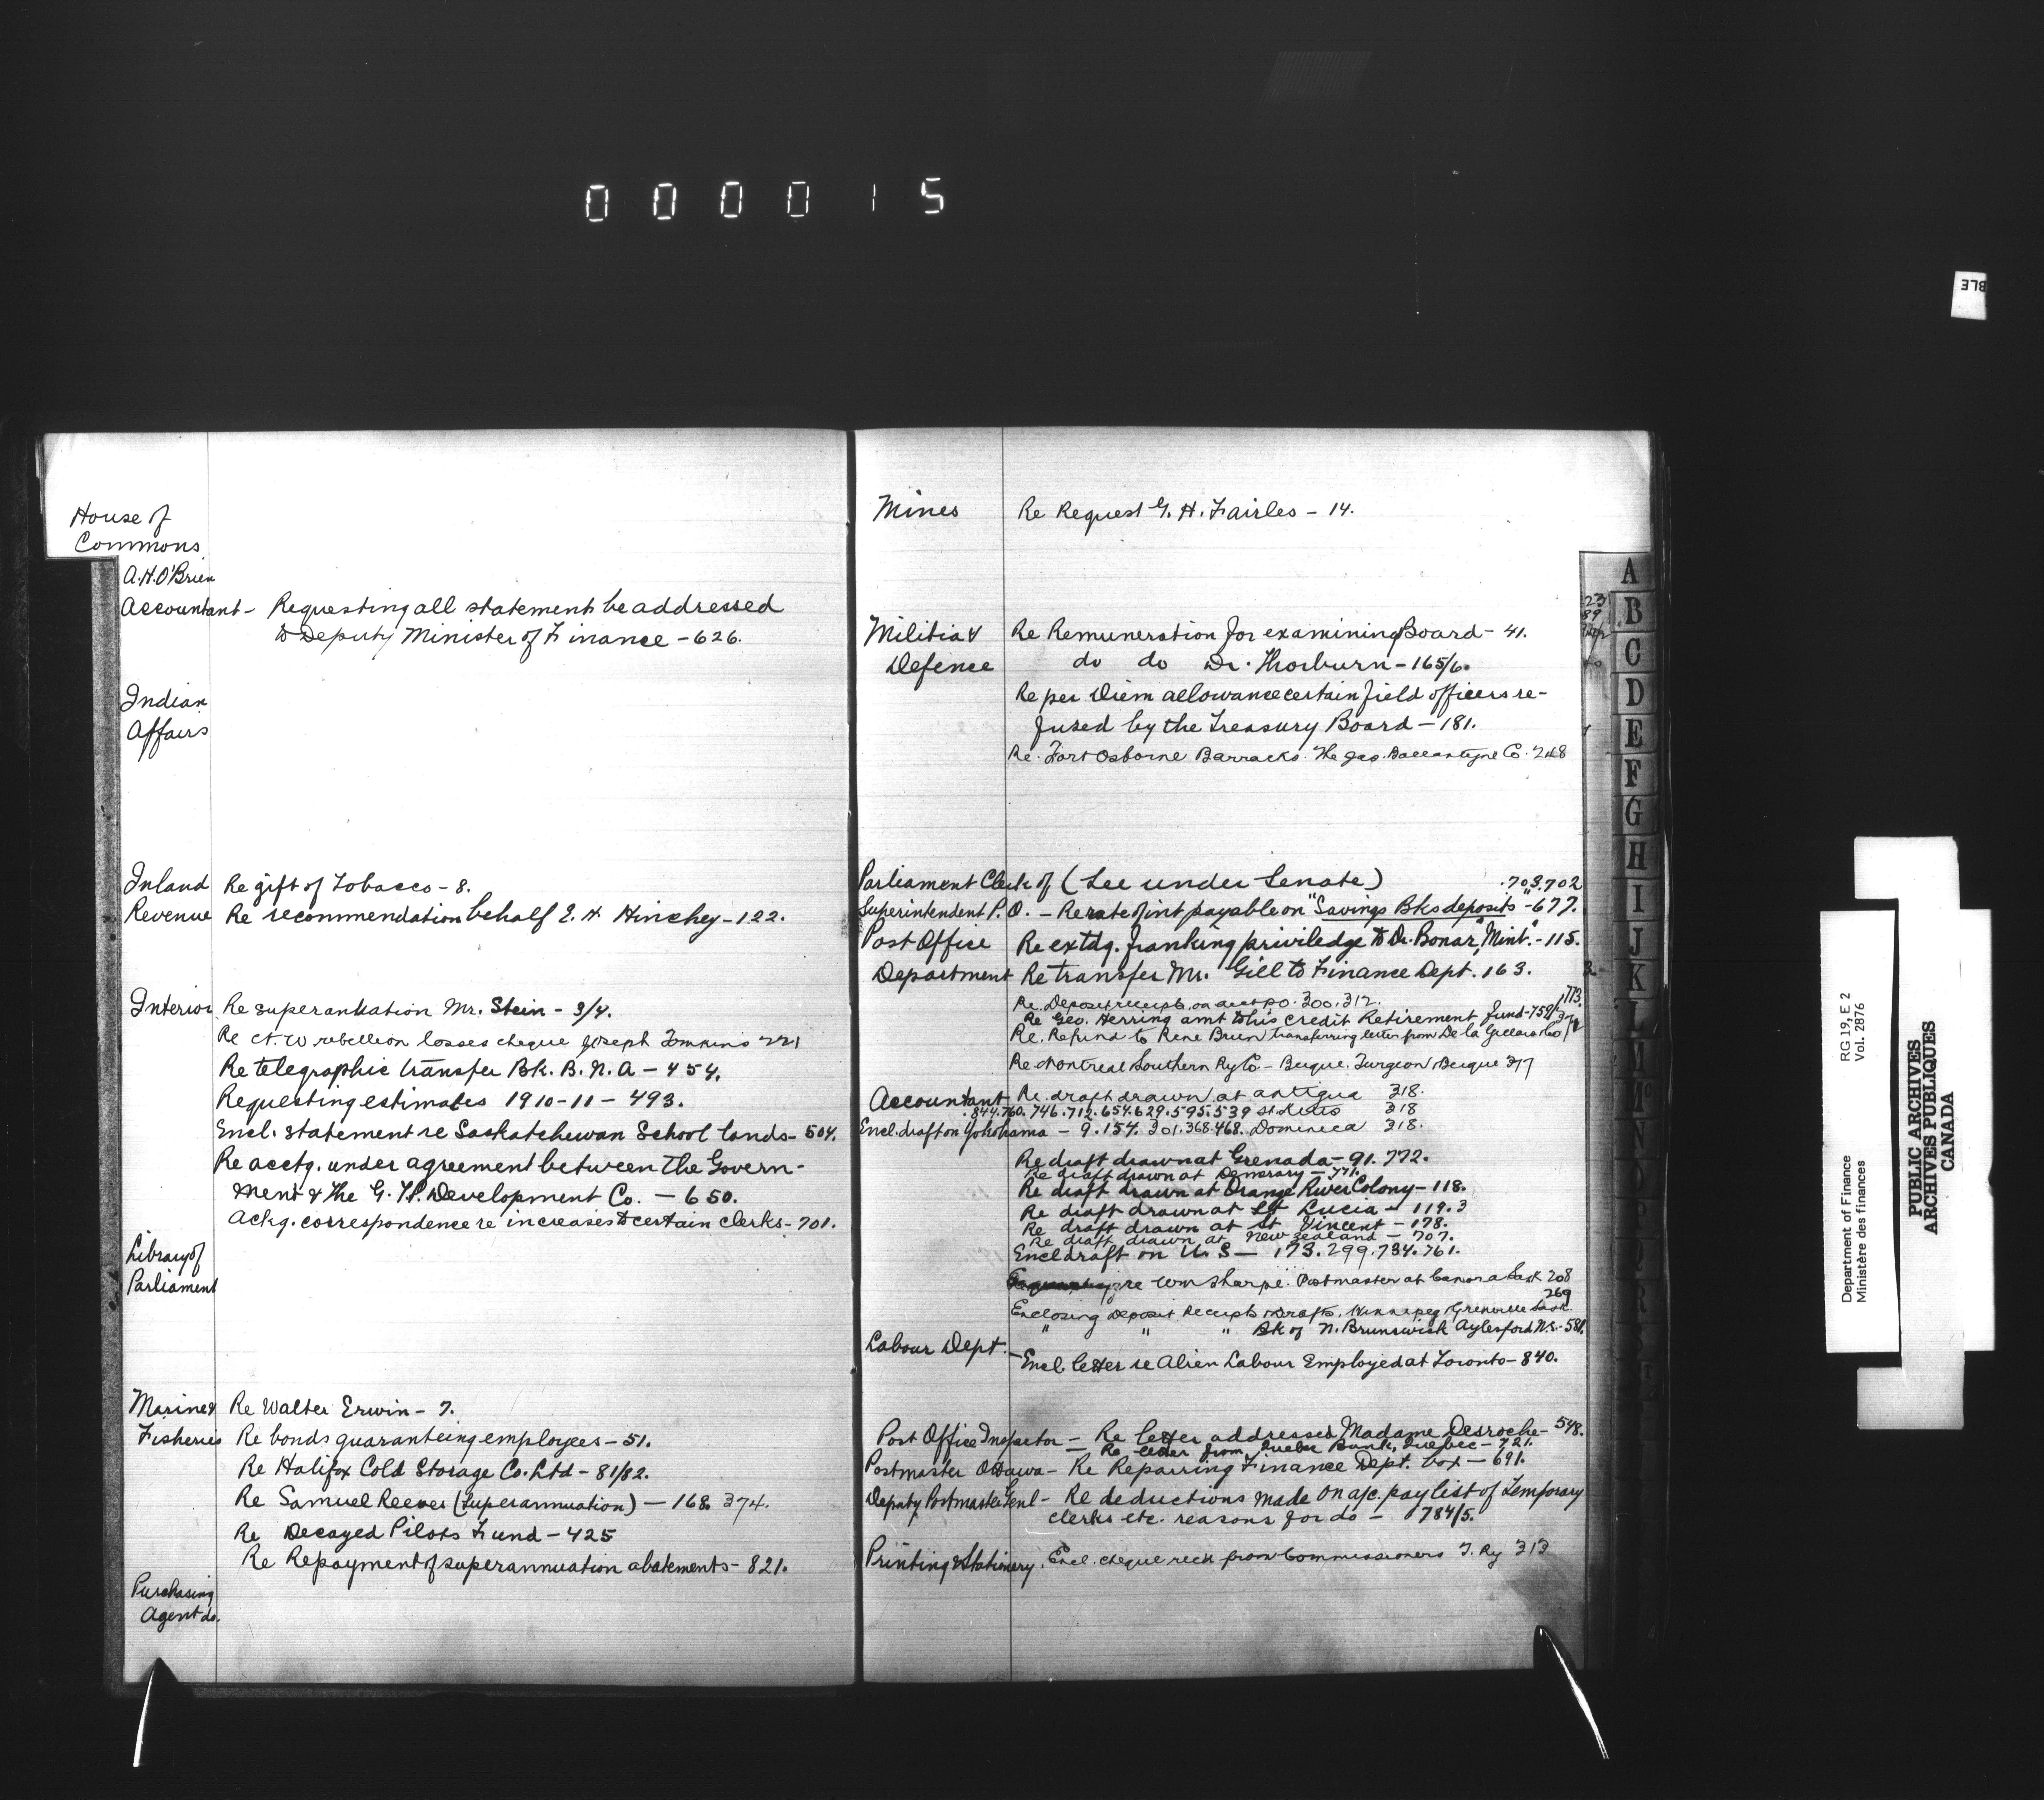 000015
House of
Commons
A.H.O'Brien
Accountant - Requesting all statement be addressed
to Deputy Minister of Finance - 626.
Indian
Affairs
Inland Re gift of Tobacco - 8.
Revenue Re recommendation behalf E. H. Hinchey - 122.
Interior Re superannuation Mr. Stein - 3/4.
Re N.W rebellion losses cheque Joseph Tomkins 221
Re telegraphic transfer Bk. B. N. A - 454.
Requesting estimates 1910-11 - 493.
Encl. statement re Saskatchewan School lands - 504.
Re acctg. under agreement between the Govern-
ment & The G. T.P. Development Co. - 650.
Ackg. correspondence re increases to certain clerks - 701.
Library of
Parliament
Marine & Re Walter Erwin - 7.
Fisheries Re bonds guaranteeing employees - 51.
Re Halifax Cold Storage Co. Ltd - 81/82.
Re Samuel Reeves (Superannuation) - 168 374.
Re Decayed Pilots Fund - 425
Re Repayment of superannuation abatements - 821.
Purchasing
Agent do.
Mines Re Request G. H. Fairles - 14.
Militia & Re Remuneration for examining Board - 41.
Defence do do Dr. Thorburn - 165/6.
Re per Diem allowance certain field officers re-
fused by the Treasury Board - 181.
Re. Fort Osborne Barracks. The Jas. Ballantyne Co. 248
Parliament Clerk of (See under Senate) 703.702
Superintendent P. O. - Re rate of int payable on "Savings Bks deposits" - 677.
Post Office Re extdg. franking priviledge to Dr. Bonar, "Mint." - 115.
Department Re transfer Mr. Gill to Finance Dept. 163.
Re. Deposit receipts on acct P.O. 300.312.
Re Geo. Herring amt to his credit Retirement Fund - 759
Re. Refund to Rene Brun transferring letter from De la
Re Montreal Southern Ry Co - Beique. Turgeon Beique 377
Accountant Re. draft drawn at Antigua 318.
.844.760.746.712.654.629.595.539 St Kitts 318
Encl. draft on Yokohama - 9.154.301.368.468. Dominica 318.
Re draft drawn at Grenada - 91.772.
Re draft drawn at Demerary - 771.
Re draft drawn at Orange River Colony - 118.
Re draft drawn at St Lucia - 119.3
Re draft drawn at St Vincent - 178.
Re draft drawn at New Zealand - 707.
Encl draft on U. S - 173.299.734.761.
re Wm Sharpe. Postmaster at Canora Sask 208
269
Enclosing Deposit Receipts & Drafts, Winnipeg, Grenville Sask.
" " " Bk of N. Brunswick Aylesford N.S. - 581.
Labour Dept. - Encl. letter re Alien Labour Employed at Toronto - 840.
Post Office Inspector - Re letter addressed Madame Desroche - 548.
- Re letter from Quebec Bank, Quebec - 721.
Postmaster Ottawa - Re Repairing Finance Dept. box - 691.
Deputy Postmaster Genl - Re deductions made on a/c. pay list of Temporary
clerks etc. reasons for do - 784/5.
Printing & Stationery. Encl. cheque recd from Commissioners T. Ry 313
A
B
C
D
E
F
G
H
I
J
K
L
M
Mc
N
O
P
Q
R
S
BLE
Department of Finance RG 19, E 2
Ministère des finances Vol. 2876
PUBLIC ARCHIVES
ARCHIVES PUBLIQUES
CANADA